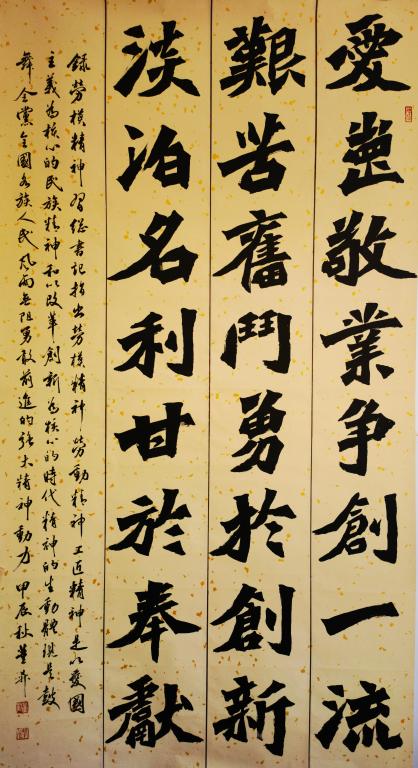 愛崗敬業争創一流
艱苦奮鬥勇於創新
淡泊名利甘於奉獻
録勞模精神習總書記指出勞模精神勞動精神工匠精神是以愛國
主義為核心的民族精神和以改革創新為核心的時代精神的生動體現是鼓
舞全黨全國各族人民風雨無阻勇敢前進的强大精神動力甲辰秋